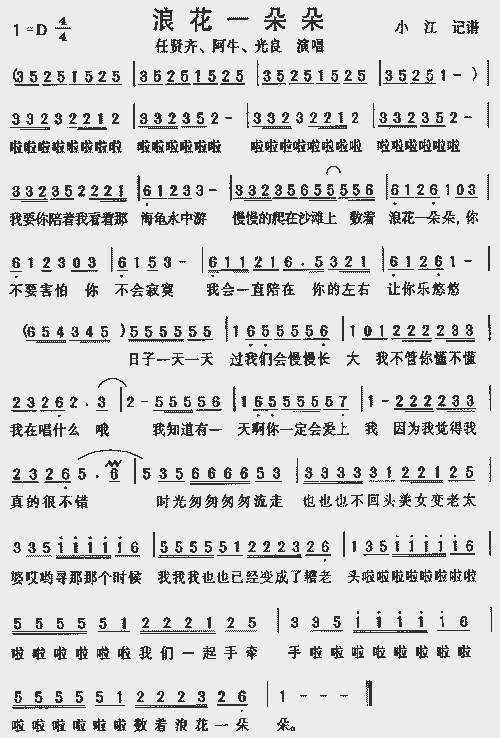 浪花一朵朵
1=D 4/4
小 江 记谱
任贤齐、阿牛、光良 演唱
(35251525 |35251525 |35251525 |35251-)
33232212 |3323352- |33232212 |3323352-
啦啦啦啦啦啦啦啦 啦啦啦啦啦啦 啦啦啦啦啦啦啦啦 啦啦啦啦啦啦
3323522221 |61233- |33235655556 |6126103
我要你陪着我看着那 海龟水中游 慢慢的爬在沙滩上 数着 浪花一朵朵,你
612303 |6153- |611216.5321 |61261-
不要害怕 你 不会寂寞 我会一直陪在 你的左右 让你乐悠悠
(654345)555555 |16555556 |1012222233
日子一天一天 过我们会慢慢长 大 我不管你懂不懂
23262.3 |2-55556 |165555557 |1-222233
我在唱什么 哦 我知道有一 天啊你一定会爱上 我 因为我觉得我
23265.6 |535666653 |333333121122
真的很不错 时光匆匆匆匆流走 也也也不回头美女变老太
3351111116 |555551222326 |1351111116
婆哎哟寻那那个时候 我我我也也已经变成了糟老 头啦啦啦啦啦啦啦啦
555551222125 |3351111116
啦啦啦啦啦我们一起手牵 手啦啦啦啦啦啦啦啦
555551222326 |1---
啦啦啦啦啦啦数着浪花一朵 朵。